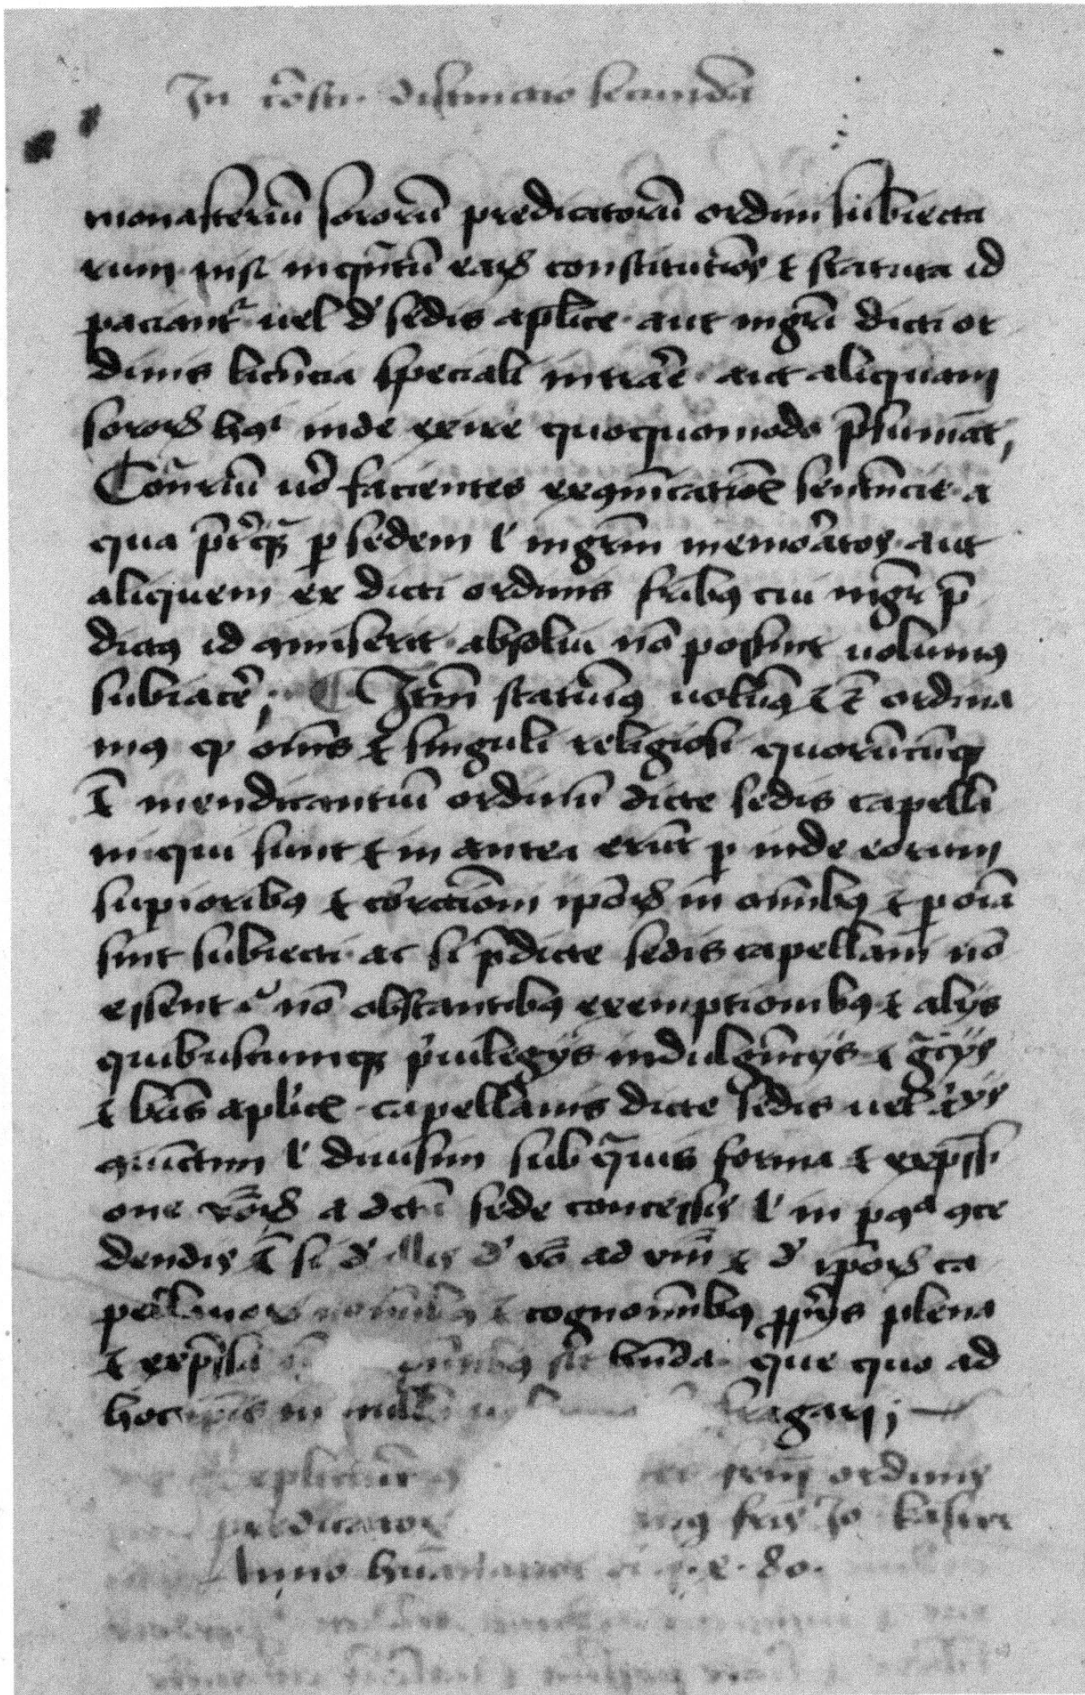 In cōsti. distinctio secunda
monasteriū sororū predicatorū ordini subiecta
rum nisi inq̄ntū eaꝝ constitutiōes ⁊ statuta id
paciant᷑ uel d' sedis aplice aut mgrī dicti or
dinis licēcia speciali intrāe aut aliquam
soroꝝ hꝰ inde exire quoquomodo p̄sumāt,
Cōn̄riū uō facientes exꝯmūicatiōis sentencie a
qua p̄t'q̄ꝫ ꝑ sedem l' mgrm̄ memoratos aut
aliquem ex dicti ordinis fribꝫ cui mgr̄ p̄
dictꝰ id ꝯmiserit absolui nō possint uolumꝰ
subiacē; Itm̄ statuimꝰ uolūꝰ ⁊ ē ordina
mꝰ ꝙ om̄s ⁊ singuli religiosi quorūcūqꝫ
ē mendicantiū ordinū dicte sedis capella
ni qui sunt ⁊ in antea erūt ꝑ inde eorum
supioribꝫ ⁊ correctiom ipōꝝ in om̄ibꝫ ⁊ ꝑ oīa
sint subiecti ac si p̄dicte sedis capellani nō
essent nō obstantibꝫ exemptionibꝫ ⁊ alijs
quibuscumqꝫ p̄uilegijs indulgēcijs ⁊ gr̄cijs
⁊ lris aplicis capellanis dicte sedis uel
ꝯiunctim l' diuisim sub q̄uis forma ⁊ exp̄ssi
one a dcā sede concessis l' in ꝯce
dendis ē si d' illis d' ad ⁊ d' ipōꝝ ca
pellanoꝝ nomībꝫ ⁊ cognomībꝫ ꝓpijs plena
⁊ exp̄ssa sit hn̄da que quo ad
hoc ip̄is in nullo fragari;
frm̄ ordinis
predicator fris Jo
Anno 80.